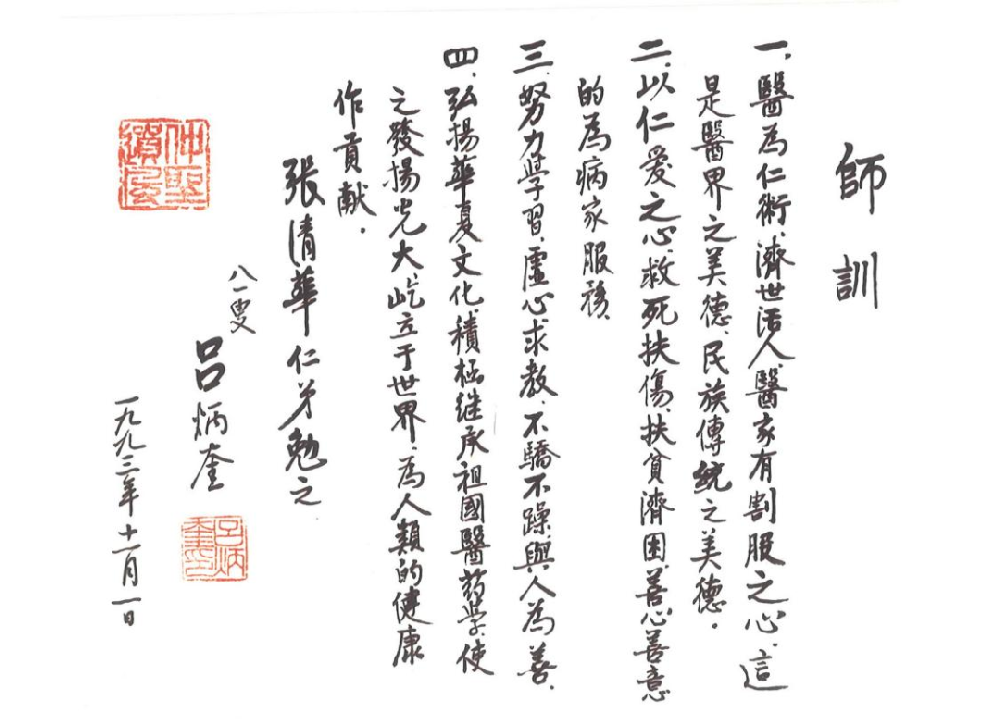 師訓
一、醫為仁術、濟世活人、醫家有割股之心、這
是醫界之美德、民族傳統之美德。
二、以仁愛之心、救死扶傷、扶貧濟困、善心善意
的為病家服務、
三、努力學習、虛心求教、不驕不躁、與人為善、
四、弘揚華夏文化、積極继承祖國醫药學、使
之發揚光大、屹立于世界、為人類的健康
作貢献。
張清華仁弟勉之
八一叟
呂炳奎
一九九三年十一月一日
仲聖遺風
呂炳奎印